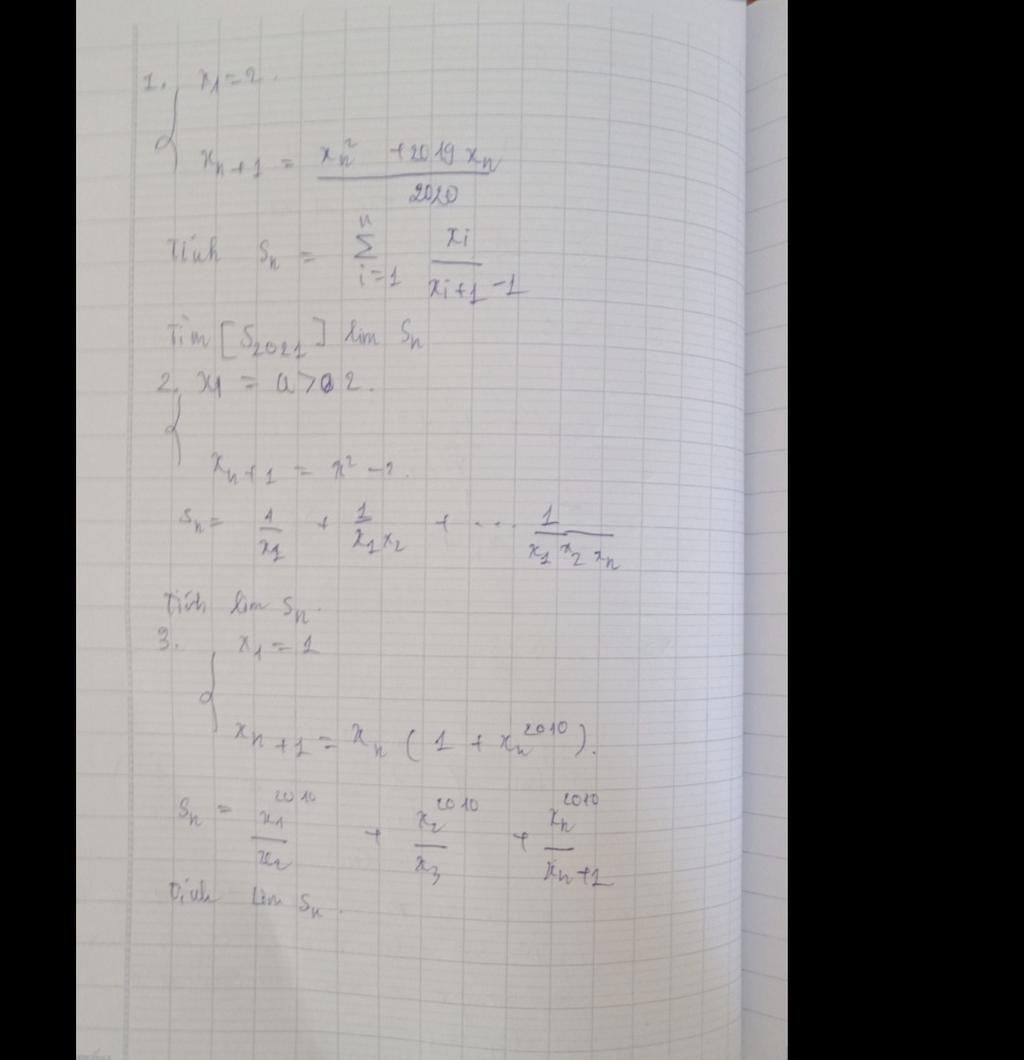 1. x₁ = 2.
xₙ₊₁ = (xₙ² + 2019 xₙ) / 2020
Tính Sₙ = ∑ᵢ₌₁ⁿ xᵢ / (xᵢ₊₁ - 1)
Tìm [S₂₀₂₁] lim Sₙ
2. x₁ = a > 2.
xₙ₊₁ = x² - 2.
Sₙ = 1/x₁ + 1/(x₁ x₂) + ... 1/(x₁ x₂ xₙ)
Tính lim Sₙ.
3. x₁ = 1
xₙ₊₁ = xₙ (1 + xₙ²⁰¹⁰).
Sₙ = x₁²⁰¹⁰/x₂ + x₂²⁰¹⁰/x₃ + xₙ²⁰¹⁰/xₙ₊₁
Tính lim Sₙ.